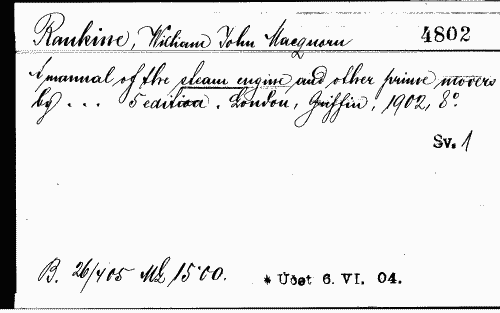 Rankine, William John Macquorn 4802
A manual of the steam engine and other prime movers
by ... 5 edition. London, Griffin, 1902, 8°.
Sv. 1
B. 26/405 Mk 15·00. * Účet 6. VI. 04.